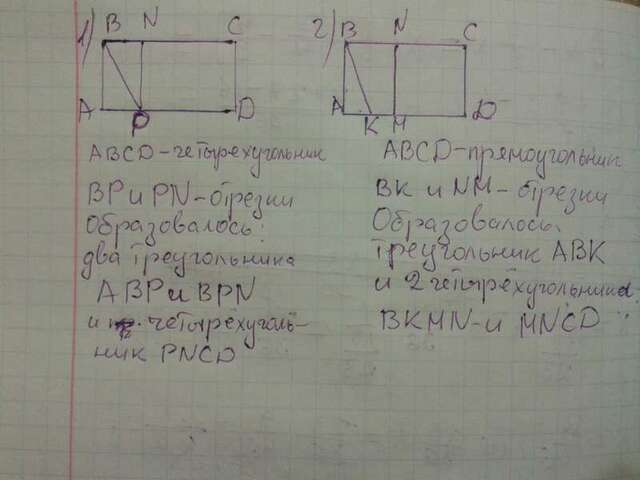 1) B N C
A P D
ABCD-четырёхугольник
BP и PN-отрезки
Образовалось:
два треугольника
ABP и BPN
и четырёхуголь-
ник PNCD
2) B N C
A K M D
ABCD-прямоугольник
BK и NM-отрезки
Образовалось
треугольник ABK
и 2 четырёхугольника
BKMN-и MNCD